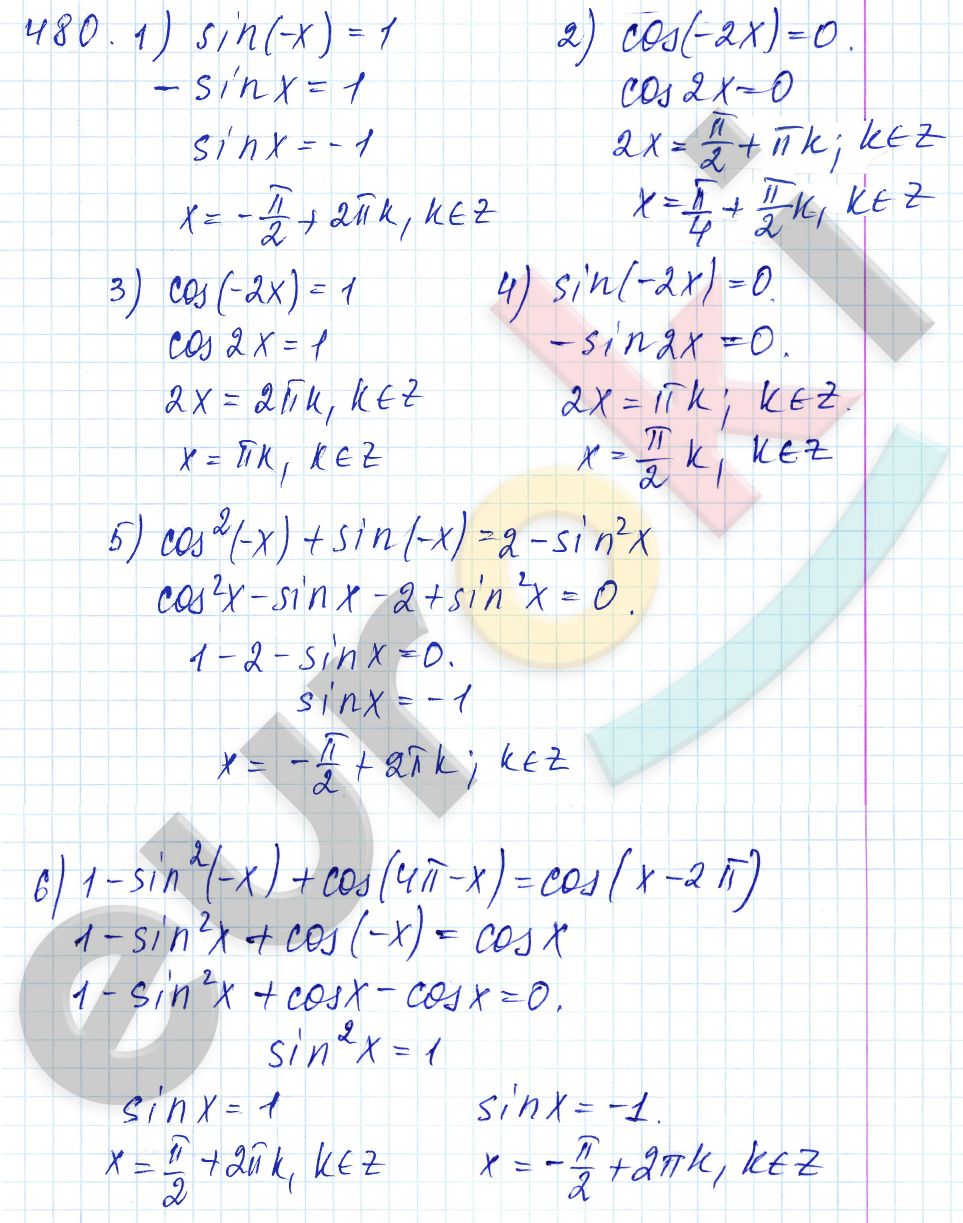 480. 1) sin(-x) = 1
- sin x = 1
sin x = -1
x = -π/2 + 2πk, k∈Z
2) cos(-2x) = 0.
cos 2x = 0
2x = π/2 + πk; k∈Z
x = π/4 + π/2 k, k∈Z
3) cos(-2x) = 1
cos 2x = 1
2x = 2πk, k∈Z
x = πk, k∈Z
4) sin(-2x) = 0.
- sin 2x = 0.
2x = πk; k∈Z.
x = π/2 k, k∈Z
5) cos²(-x) + sin(-x) = 2 - sin²x
cos²x - sin x - 2 + sin²x = 0.
1 - 2 - sin x = 0.
sin x = -1
x = -π/2 + 2πk; k∈Z
6) 1 - sin²(-x) + cos(4π - x) = cos(x - 2π)
1 - sin²x + cos(-x) = cos x
1 - sin²x + cos x - cos x = 0.
sin²x = 1
sin x = 1
x = π/2 + 2πk, k∈Z
sin x = -1.
x = -π/2 + 2πk, k∈Z
euroki